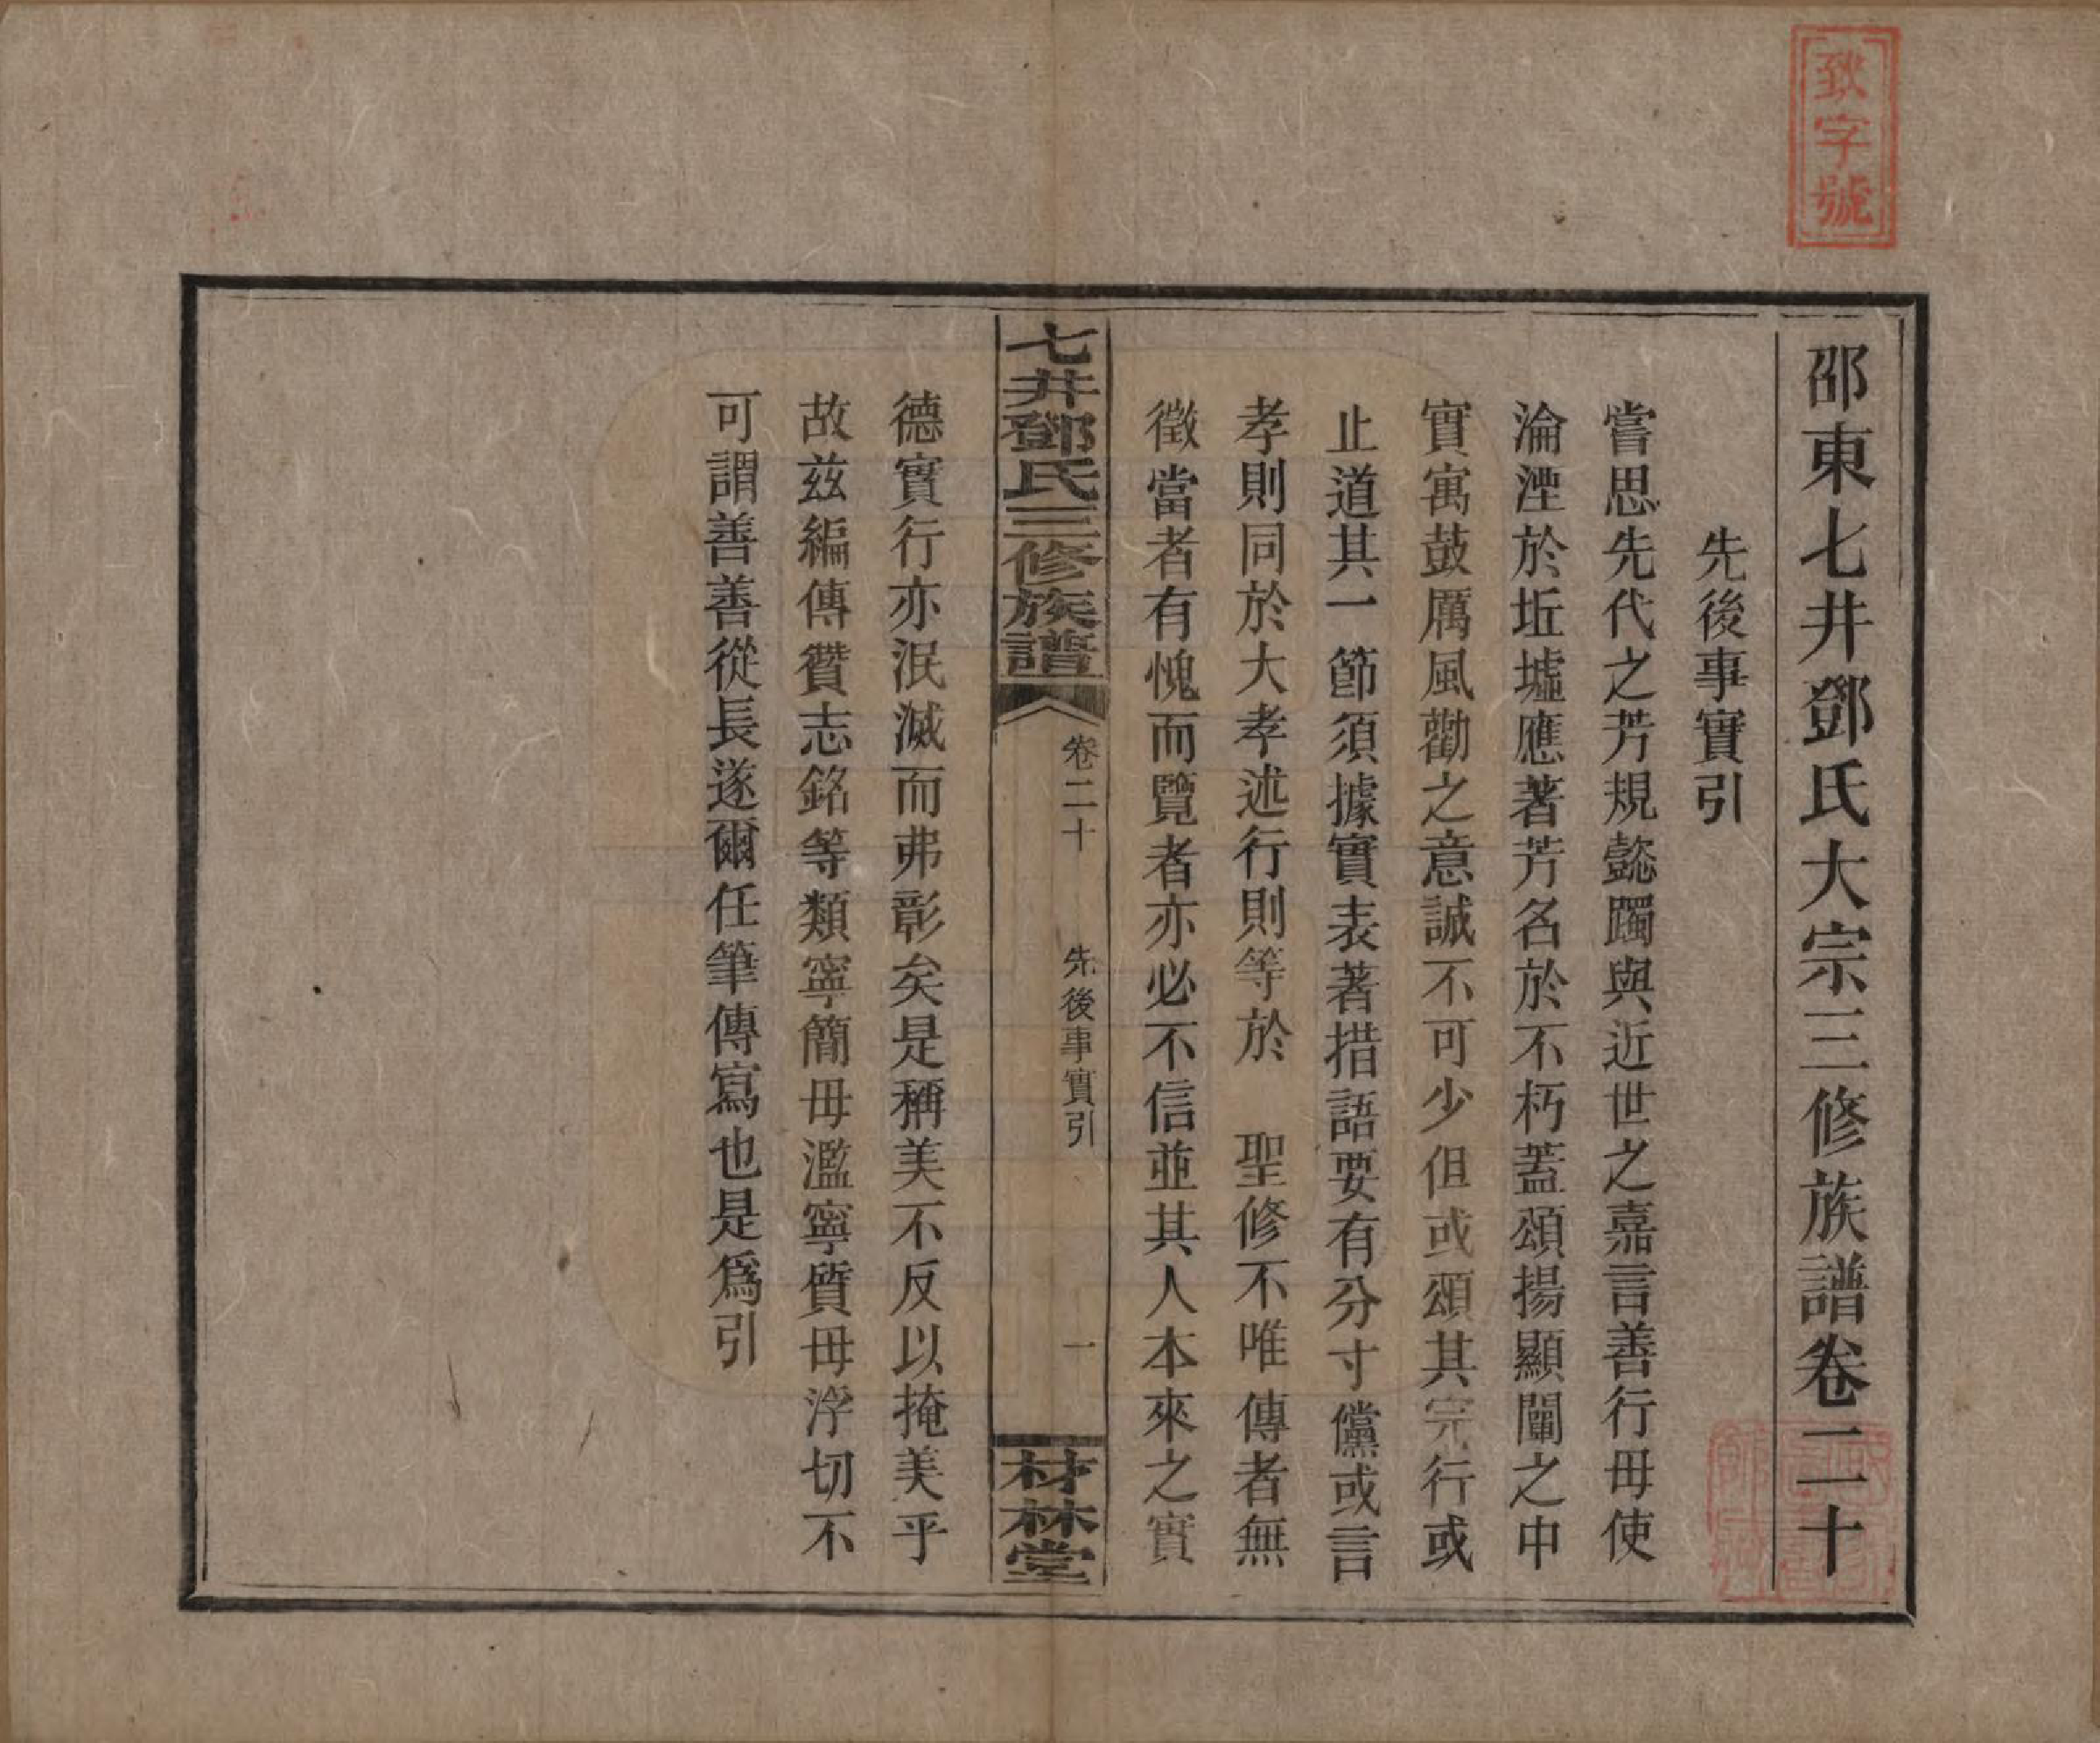 致字號
邵東七井鄧氏大宗三修族譜卷二十
先後事實引
嘗思先代之芳規懿躅與近世之嘉言善行毋使
淪湮於坵墟應著芳名於不朽蓋頌揚顯闡之中
實寓鼓厲風勸之意誠不可少但或頌其完行或
止道其一節須據實表著措語要有分寸儻或言
孝則同於大孝述行則等於 聖修不唯傳者無
徵當者有愧而覽者亦必不信並其人本來之實
七井鄧氏三修族譜
卷二十 先後事實引 一
材林堂
德實行亦泯滅而弗彰矣是稱美不反以掩美乎
故茲編傳贊志銘等類寧簡毋濫寧質毋浮切不
可謂善善從長遂爾任筆傳寫也是爲引